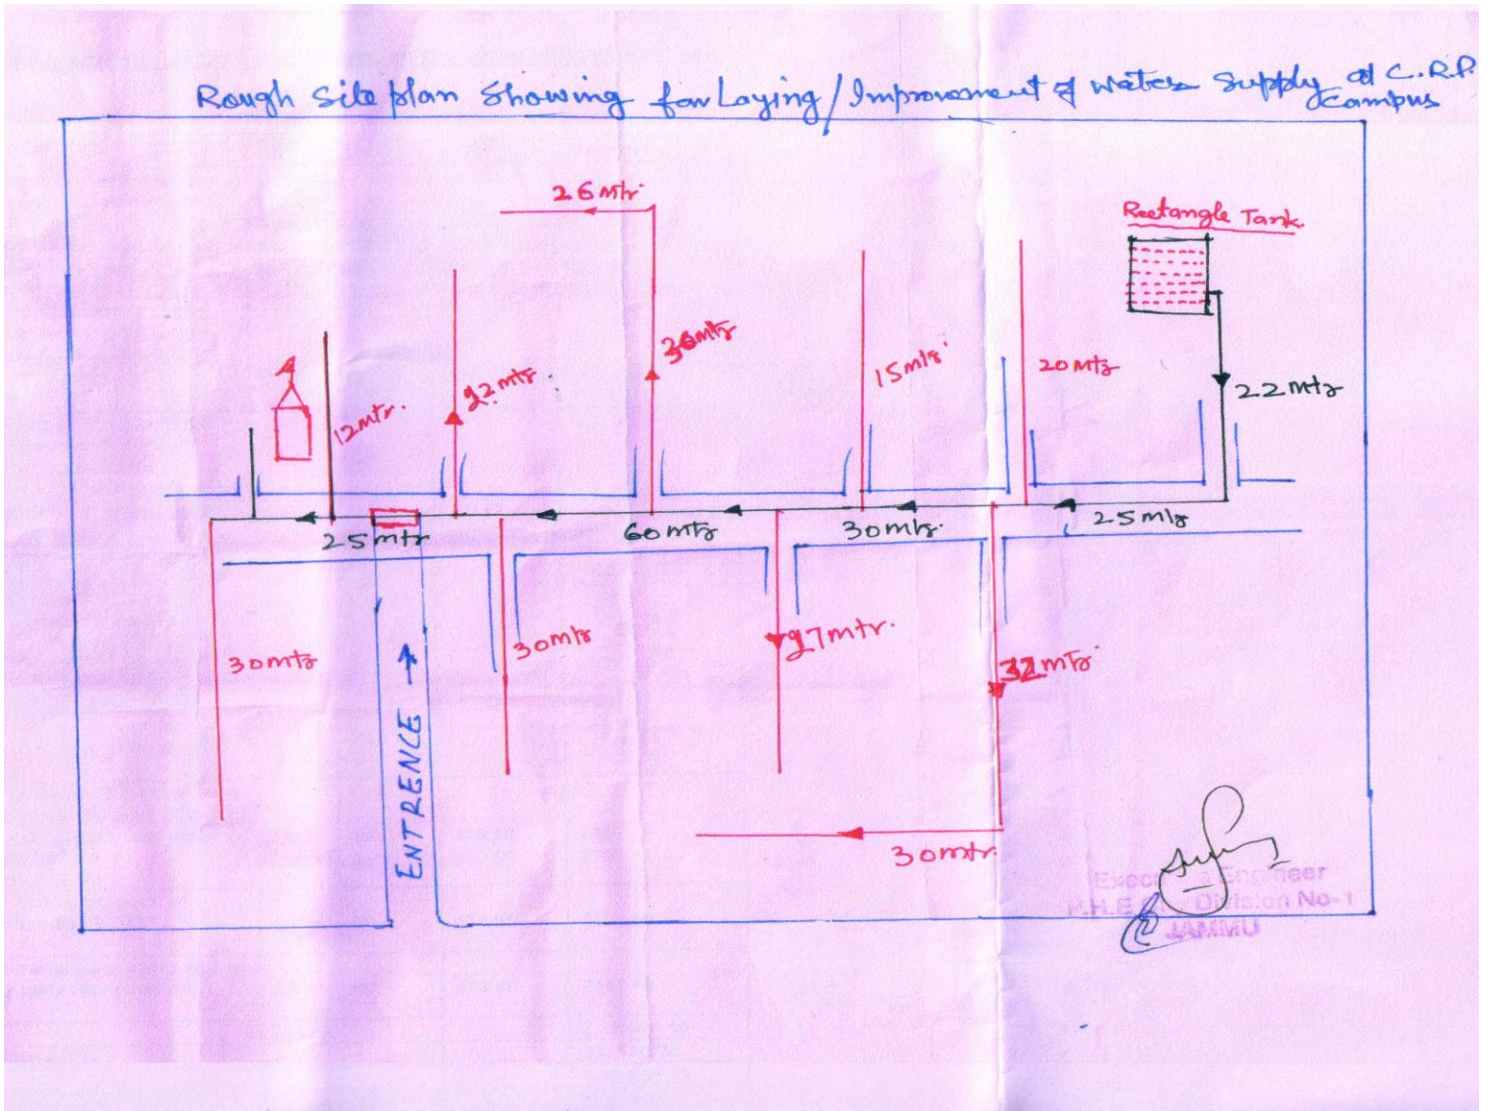 Rough Site plan Showing for Laying/Improvement of Water Supply at C.R.P.
Campus
26 Mtr.
Rectangle Tank.
36mtr
15mtr.
20mtr
22mtr
22mtr
12mtr.
25mtr
60mtr
30mtr.
25mtr
30mtr
30mtr
27mtr.
32mtr.
ENTRENCE →
30mtr.
Engineer
Division No-1
JAMMU